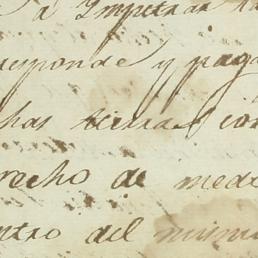 a Impetrar
responde y paga
has tierras con
recho de med
ntro del mism